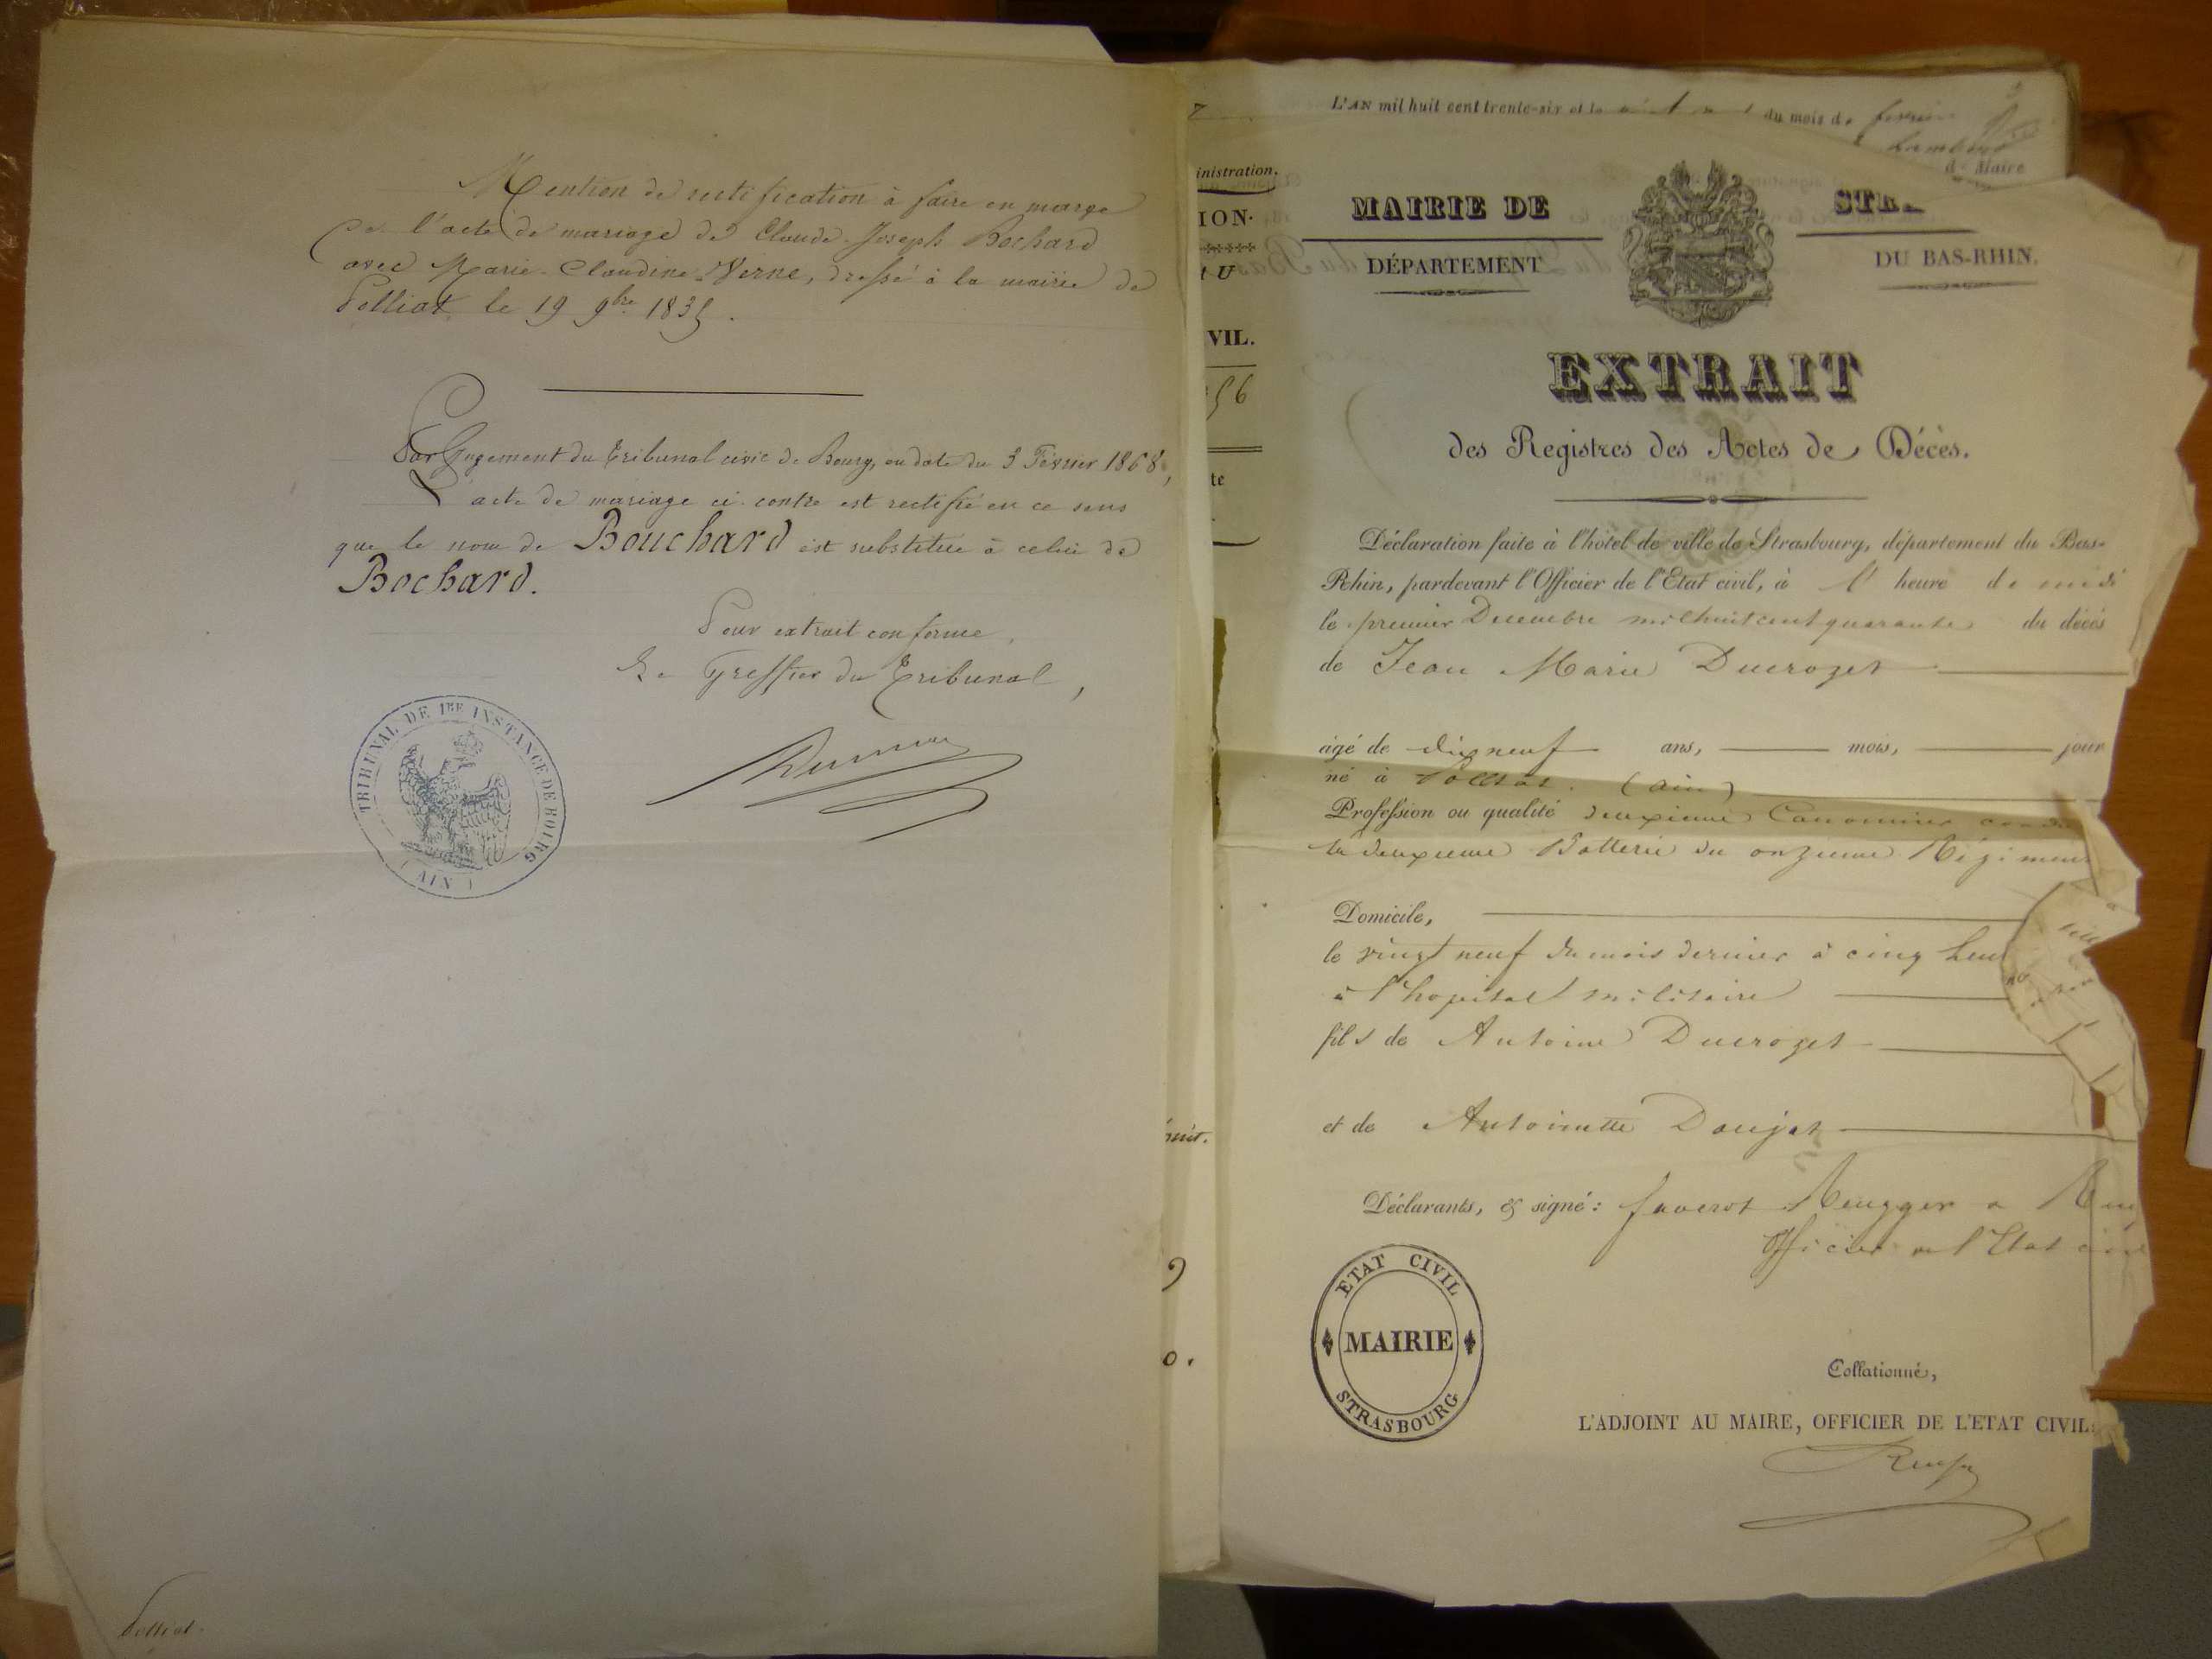 Mention de rectification à faire en marge
de l'acte de mariage de Claude-Joseph Bochard
avec Marie-Claudine Verne, dressé à la mairie de
Polliat le 19 9bre 1835.
Par Jugement du Tribunal civil de Bourg, en date du 3 Février 1868,
L'acte de mariage ci-contre est rectifié en ce sens
que le nom de Bouchard est substitué à celui de
Bochard.
Pour extrait conforme,
Le Greffier du Tribunal,
TRIBUNAL DE 1RE INSTANCE DE BOURG
(AIN)
Polliat
inistration.
ION.
VIL.
56
te
L'AN mil huit cent trente-six et le
du mois de fevrier
Maire
MAIRIE DE
STR
DÉPARTEMENT
DU BAS-RHIN.
EXTRAIT
des Registres des Actes de Décès.
Déclaration faite à l'hôtel de ville de Strasbourg, département du Bas-
Rhin, pardevant l'Officier de l'Etat civil, à l' heure de midi
le premier Decembre mil huit cent quarante du décès
de Jean Marie Ducrozet
âgé de dix neuf ans, mois, jour
né à Polliat. (ain)
Profession ou qualité deuxieme Canonnier
la deuxieme Batterie du onzieme Régimen
Domicile,
le vingt neuf du mois dernier à cinq heu
à l'hopital militaire
fils de Antoine Ducrozet
et de Antoinette Doujat
Déclarants, & signé: Faverot Reugger
officier de l'Etat civil
ETAT CIVIL
MAIRIE
STRASBOURG
Collationné,
L'ADJOINT AU MAIRE, OFFICIER DE L'ETAT CIVIL: